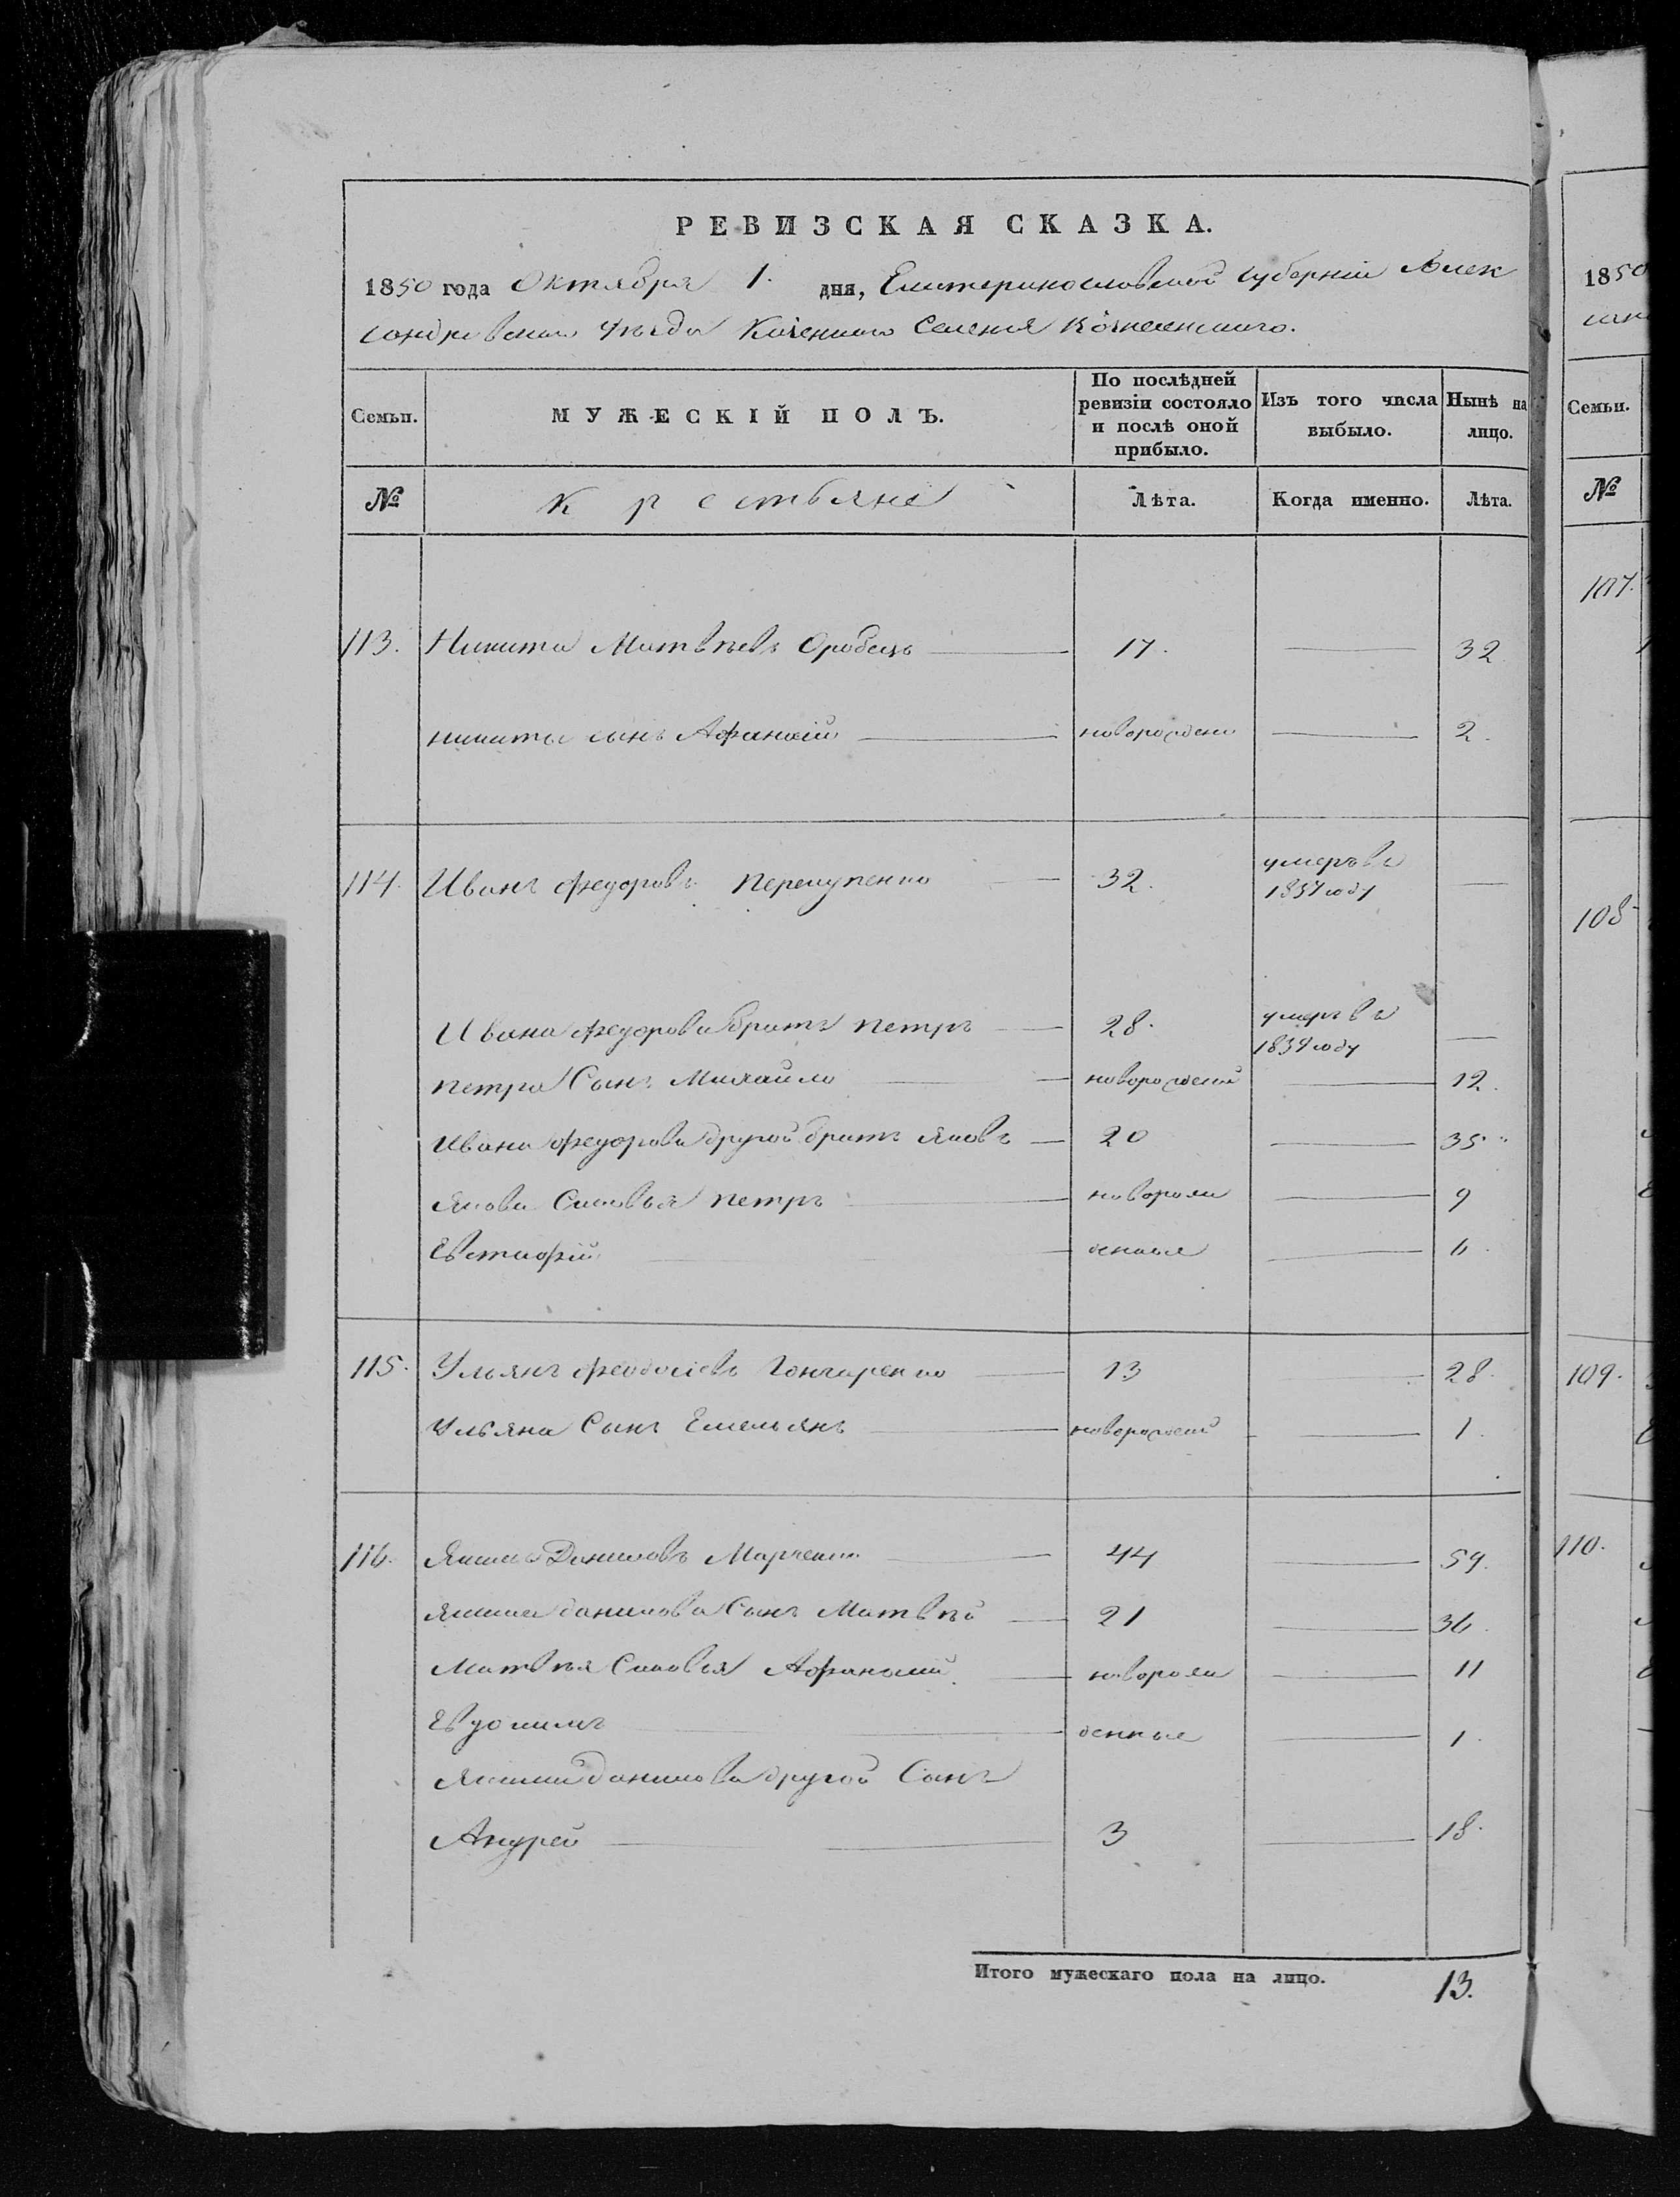 РЕВИЗСКАЯ СКАЗКА.
1850 года Октября 1. дня, Екатеринославской губерніи Алек
сандровскаго уѣзда Казеннаго Селенія Вознесенскаго.
Семьи. МУЖЕСКІЙ ПОЛЪ. По послѣдней ревизіи состояло и послѣ оной прибыло. Изъ того числа выбыло. Нынѣ на лицо.
№ Крестьяне Лѣта. Когда именно. Лѣта.
113. Никита Матвѣевъ Оробецъ 17. 32
никиты сынъ Афанасій новорожден 2.
114. Иванъ Федоровъ 32. умеръ въ 1837 году
Ивана Федорова братъ петръ 28. умеръ въ 1839 году
петра Сынъ Михайло новорожденый 12.
Ивана Федорова другой братъ Яковъ 20 35.
Якова Сыновья петръ новорож 9
Евстафій денные 6.
115. Ульянъ Феодосіевъ Гончаренко 13 28.
Ульяна Сынъ Емельянъ новорожденый 1.
116. Якимъ Даниловъ Марченко 44 59.
Якима данилова Сынъ Матвѣй 21 36.
Матвѣя Сыновья Афанасій новорож 11
Евдокимъ денные 1.
Якима данилова другой Сынъ
Андрей 3 18.
Итого мужескаго пола на лицо. 13.
1850
Семьи.
№
107.
108
109.
110.